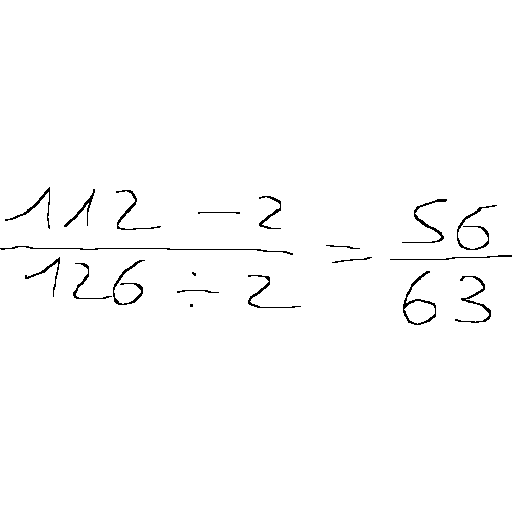 112 - 2 / 126 ÷ 2 = 56 / 63